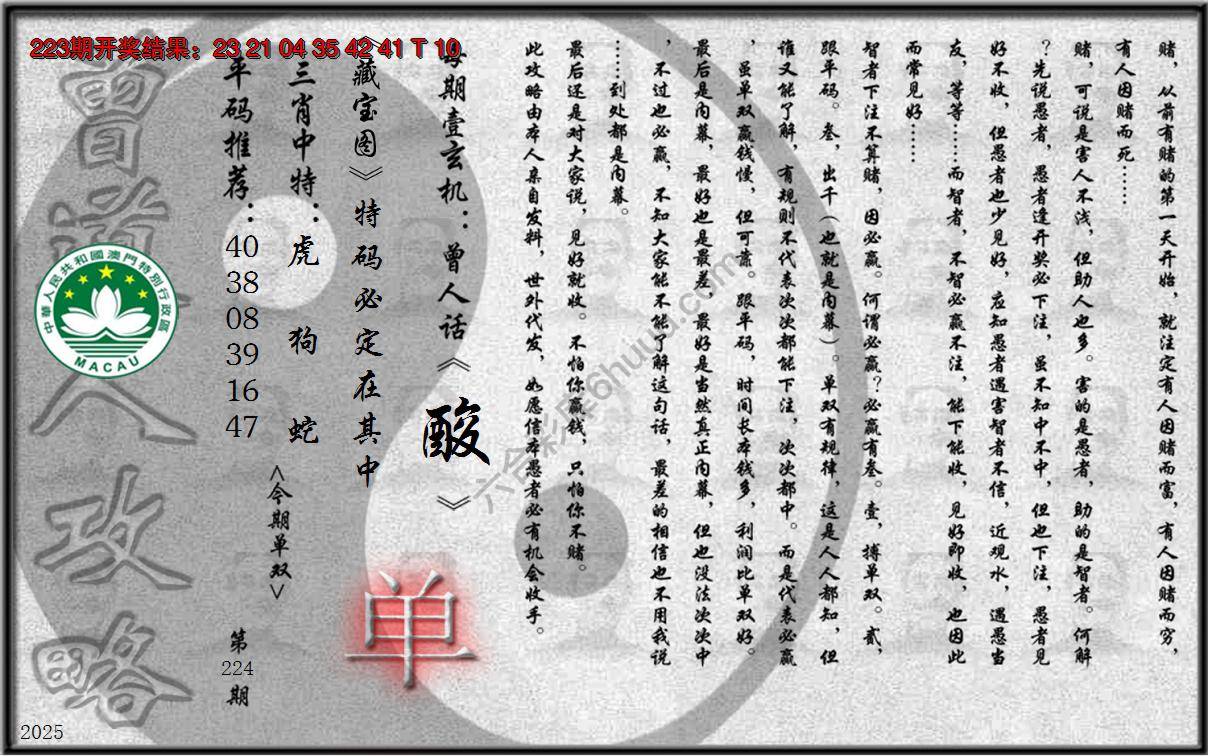 223期开奖结果：23 21 04 35 42 41 T 10
赌，从前有赌的第一天开始，就注定有人因赌而富，有人因赌而穷，
有人因赌而死……
赌，可说是害人不浅，但助人也多。害的是愚者，助的是智者。何解
？先说愚者，愚者逢开奖必下注，虽不知中不中，但也下注，愚者见
好不收，但愚者也少见好，应知愚者遇害智者不信，近观水，遇愚当
友，等等……而智者，不智必赢不注，能下能收，见好即收，也因此
而常见好……
智者下注不算赌，因必赢。何谓必赢？必赢有叁。壹，搏单双。贰，
跟平码。叁，出千（也就是内幕）。单双有规律，这是人人都知，但
谁又能了解，有规则不代表次次都能下注，次次都中。而是代表必赢
，虽单双赢钱慢，但可靠。跟平码，时间长本钱多，利润比单双好。
最后是内幕，最好也是最差，最好是当然真正内幕，但也没法次次中
，不过也必赢，不知大家能不能了解这句话，最差的相信也不用我说
……到处都是内幕。
最后还是对大家说，见好就收。不怕你赢钱，只怕你不赌。
此攻略由本人亲自发料，世外代发，如愿信本愚者必有机会收手。
每期壹玄机：曾人话《酸》
《藏宝图》特码必定在其中
单
三肖中特：虎 狗 蛇
<今期单双>
平码推荐：40 38 08 39 16 47
第224期
曾道人攻略
中華人民共和國澳門特別行政區
MACAU
六合彩库6huuu.com
2025